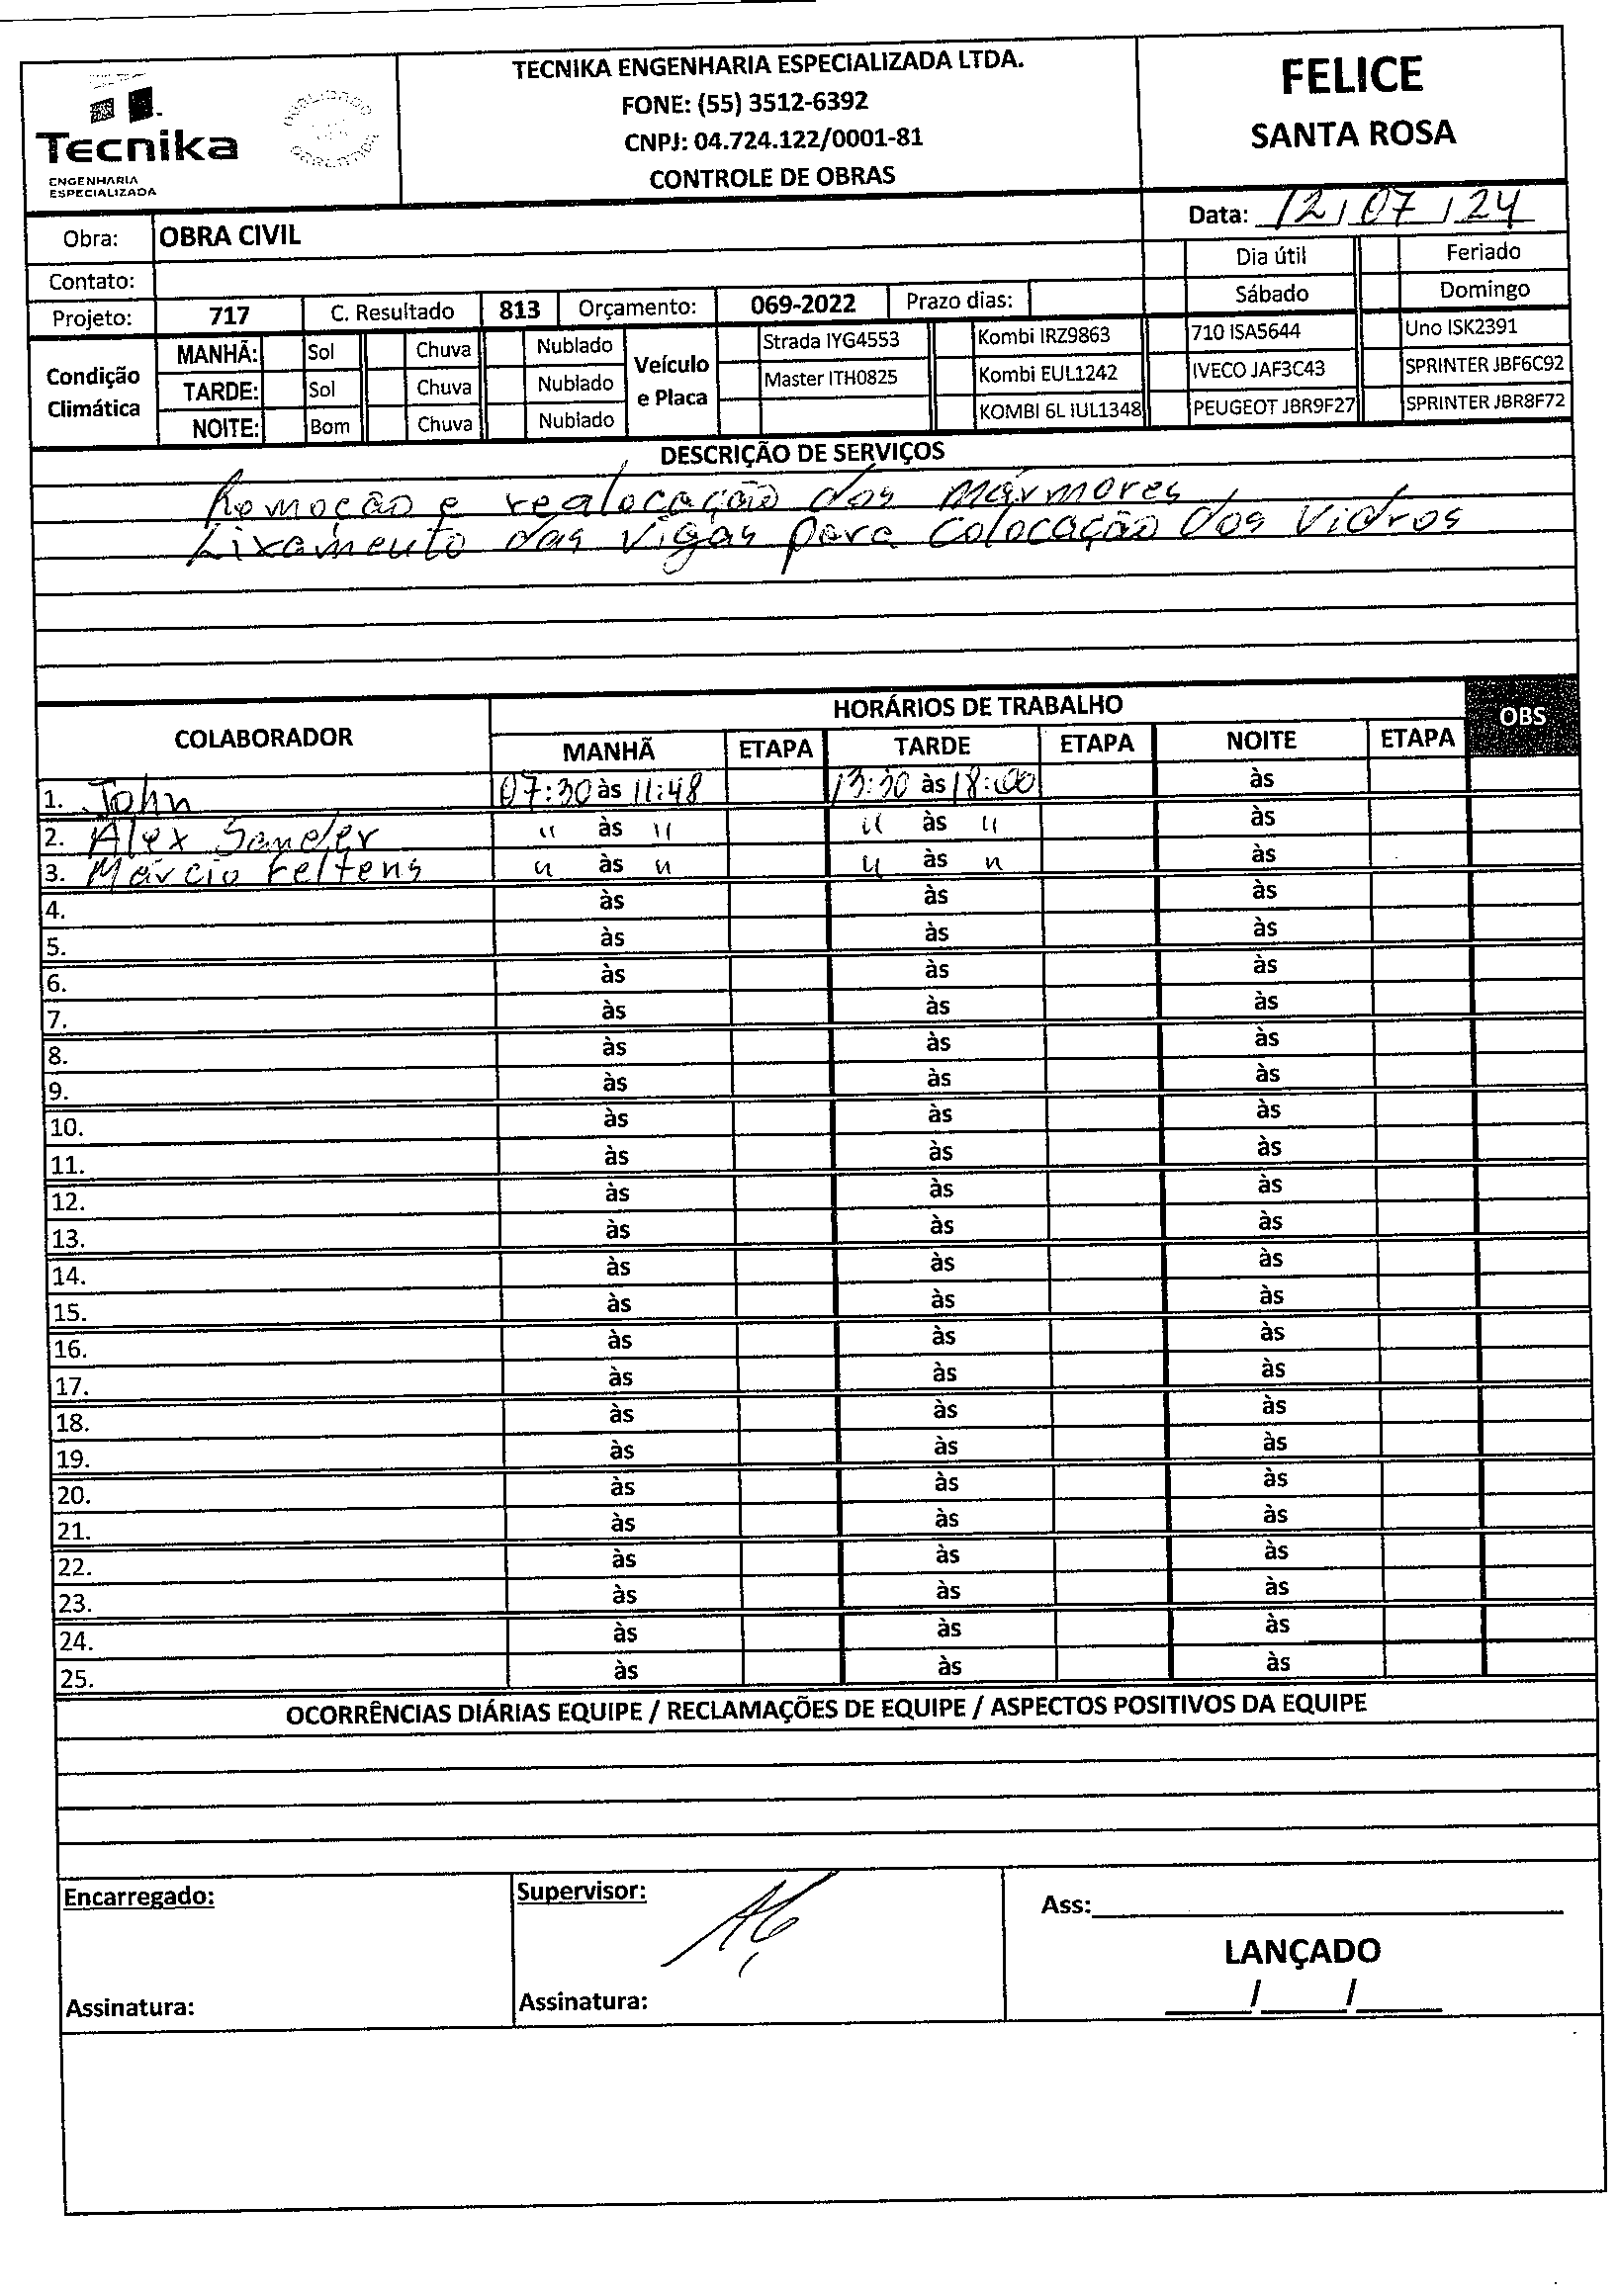 TECNIKA ENGENHARIA ESPECIALIZADA LTDA.
FONE: (55) 3512-6392
CNPJ: 04.724.122/0001-81
CONTROLE DE OBRAS
Tecnika
ENGENHARIA
ESPECIALIZADA
FELICE
SANTA ROSA
Data: 12/07/24
Obra: OBRA CIVIL
Contato:
Dia útil Feriado
Sábado Domingo
Projeto: 717 C. Resultado 813 Orçamento: 069-2022 Prazo dias:
Condição Climática
MANHÃ: Sol Chuva Nublado
TARDE: Sol Chuva Nublado
NOITE: Bom Chuva Nublado
Veículo e Placa
Strada IYG4553 Kombi IRZ9863 710 ISA5644 Uno ISK2391
Master ITH0825 Kombi EUL1242 IVECO JAF3C43 SPRINTER JBF6C92
KOMBI 6L IUL1348 PEUGEOT JBR9F27 SPRINTER JBR8F72
DESCRIÇÃO DE SERVIÇOS
Remoção e realocação dos mármores
Lixamento das vigas para colocação dos vidros
HORÁRIOS DE TRABALHO OBS
COLABORADOR MANHÃ ETAPA TARDE ETAPA NOITE ETAPA
1. John 07:30 às 11:48 13:30 às 18:00 às
2. Alex Sander " às " " às " às
3. Márcio Feltens " às " " às " às
4. às às às
5. às às às
6. às às às
7. às às às
8. às às às
9. às às às
10. às às às
11. às às às
12. às às às
13. às às às
14. às às às
15. às às às
16. às às às
17. às às às
18. às às às
19. às às às
20. às às às
21. às às às
22. às às às
23. às às às
24. às às às
25. às às às
OCORRÊNCIAS DIÁRIAS EQUIPE / RECLAMAÇÕES DE EQUIPE / ASPECTOS POSITIVOS DA EQUIPE
Encarregado:
Assinatura:
Supervisor:
Assinatura:
Ass:
LANÇADO
/ /